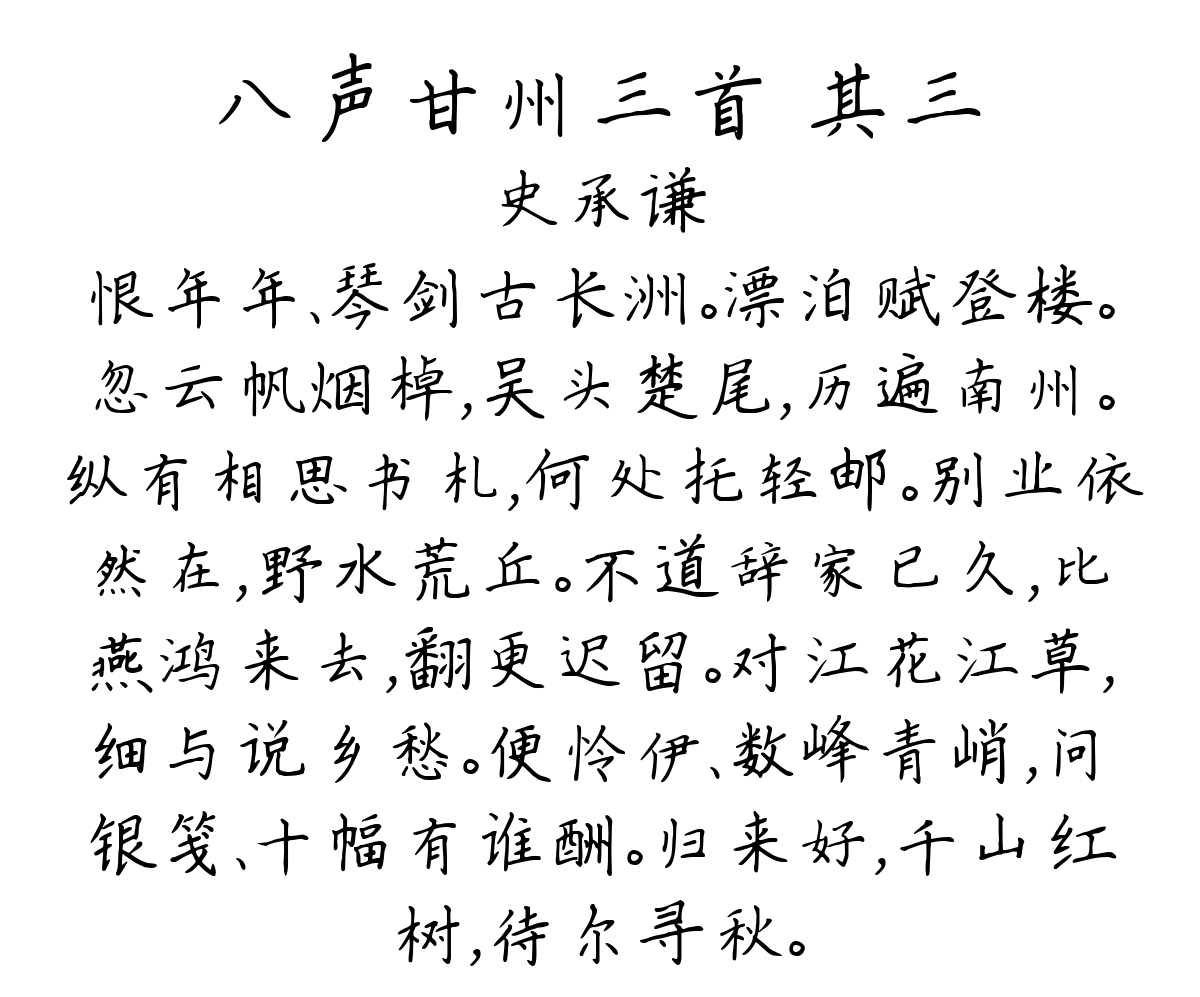 八声甘州三首 其三
史承谦
恨年年、琴剑古长洲。漂泊赋登楼。
忽云帆烟棹,吴头楚尾,历遍南州。
纵有相思书札,何处托轻邮。别业依
然在,野水荒丘。不道辞家已久,比
燕鸿来去,翻更迟留。对江花江草,
细与说乡愁。便怜伊、数峰青峭,问
银笺、十幅有谁酬。归来好,千山红
树,待尔寻秋。